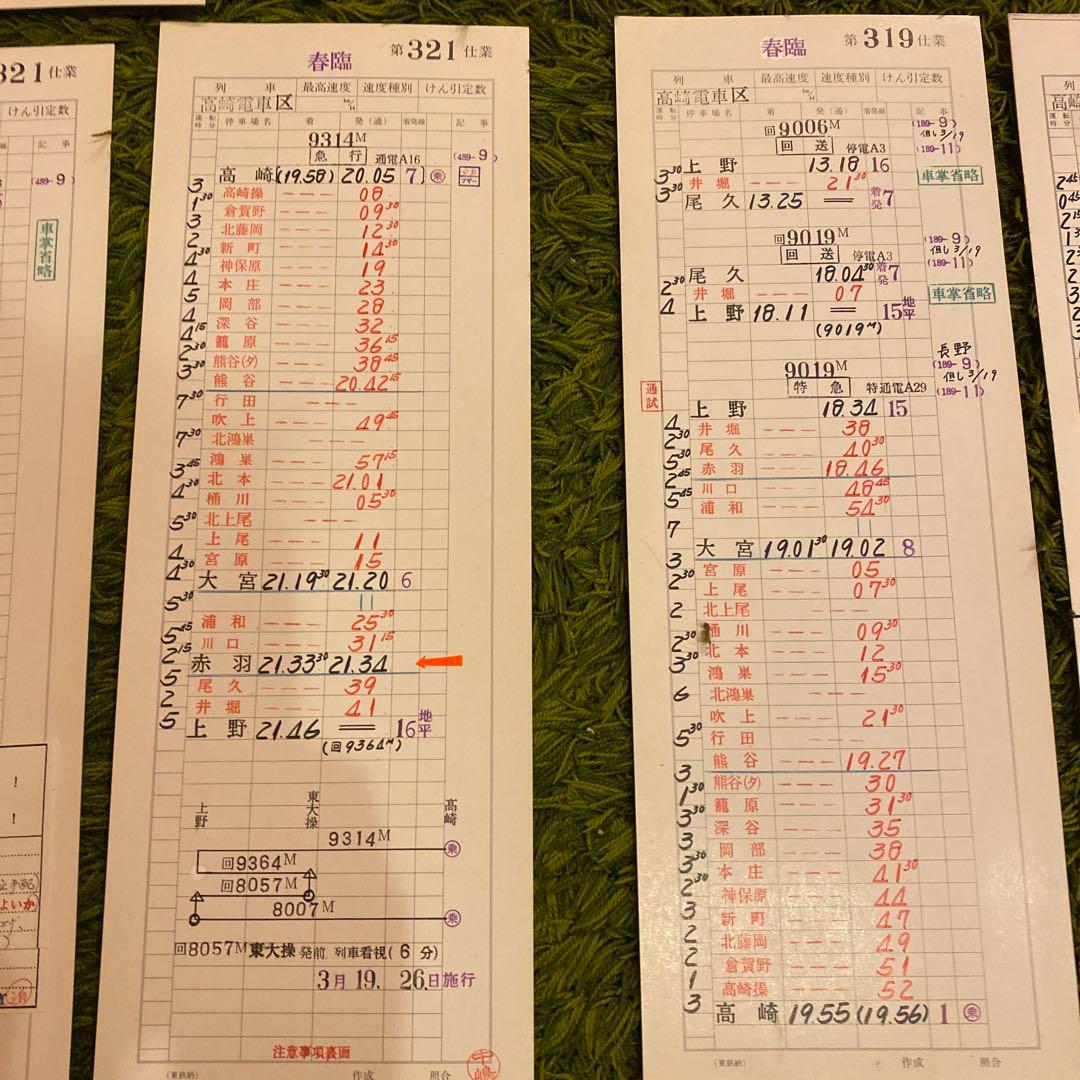 321仕業
けん引定数
記事
(489-9)
車掌省略
春臨
第321仕業
列車 最高速度 速度種別 けん引定数
高崎電車区 km/H
運転時分 停車場名 着 発(通) 着発線 記事
9314M
急行 通電A16 (489-9)
高崎 (19.58) 20.05 7 乗
3 高崎操 --- 08
1 30 倉賀野 --- 09 30
3 北藤岡 --- 12 30
2 新町 --- 14 30
4 30 神保原 --- 19
4 本庄 --- 23
5 岡部 --- 28
4 深谷 --- 32
4 15 籠原 --- 36 15
2 30 熊谷(タ) --- 38 45
3 30 熊谷 --- 20.42 15
行田 ---
7 30 吹上 --- 49 45
北鴻巣 ---
7 30 鴻巣 --- 57 15
3 45 北本 --- 21.01
4 30 桶川 --- 05 30
北上尾 ---
5 30 上尾 --- 11
4 宮原 --- 15
4 30 大宮 21.19 30 21.20 6
5 30 浦和 --- 25 30
5 45 川口 --- 31 15
2 15 赤羽 21.33 30 21.34
5 尾久 --- 39
2 井堀 --- 41
5 上野 21.46 = 16 地平
(回9364M)
上野 東大操 高崎
9314M 乗
回9364M
回8057M
8007M 乗
回8057M東大操発前 列車看視(6分)
3月19.26.日施行
注意事項裏面
(東鉄納) 作成 照合
中嶋
春臨
第319仕業
列車 最高速度 速度種別 けん引定数
高崎電車区 km/H
運転時分 停車場名 着 発(通) 着発線 記事
回9006M (189-9)
但し3/19
回送 停電A3 (189-11)
上野 13.18 16 車掌省略
3 30 井堀 --- 21 30
3 30 尾久 13.25 = 着発7
回9019M (189-9)
但し3/19
回送 停電A3 (189-11)
尾久 18.04 30 着発7
2 30 井堀 --- 07 車掌省略
4 上野 18.11 = 15 地平
(9019M)
長野
9019M (189-9)
但し3/19
通試 特急 特通電A29 (189-11)
上野 18.34 15
4 井堀 --- 38
2 30 尾久 --- 40 30
5 30 赤羽 --- 18.46
2 45 川口 --- 48 45
5 45 浦和 --- 54 30
7 大宮 19.01 30 19.02 8
3 宮原 --- 05
2 30 上尾 --- 07 30
北上尾 ---
2 桶川 --- 09 30
2 30 北本 --- 12
3 30 鴻巣 --- 15 30
北鴻巣 ---
6 吹上 --- 21 30
行田 ---
5 30 熊谷 --- 19.27
3 熊谷(タ) --- 30
1 30 籠原 --- 31 30
3 30 深谷 --- 35
3 岡部 --- 38
3 30 本庄 --- 41 30
2 30 神保原 --- 44
3 新町 --- 47
2 北藤岡 --- 49
2 倉賀野 --- 51
1 高崎操 --- 52
3 高崎 19.55 (19.56) 1 乗
(東鉄納) 作成 照合